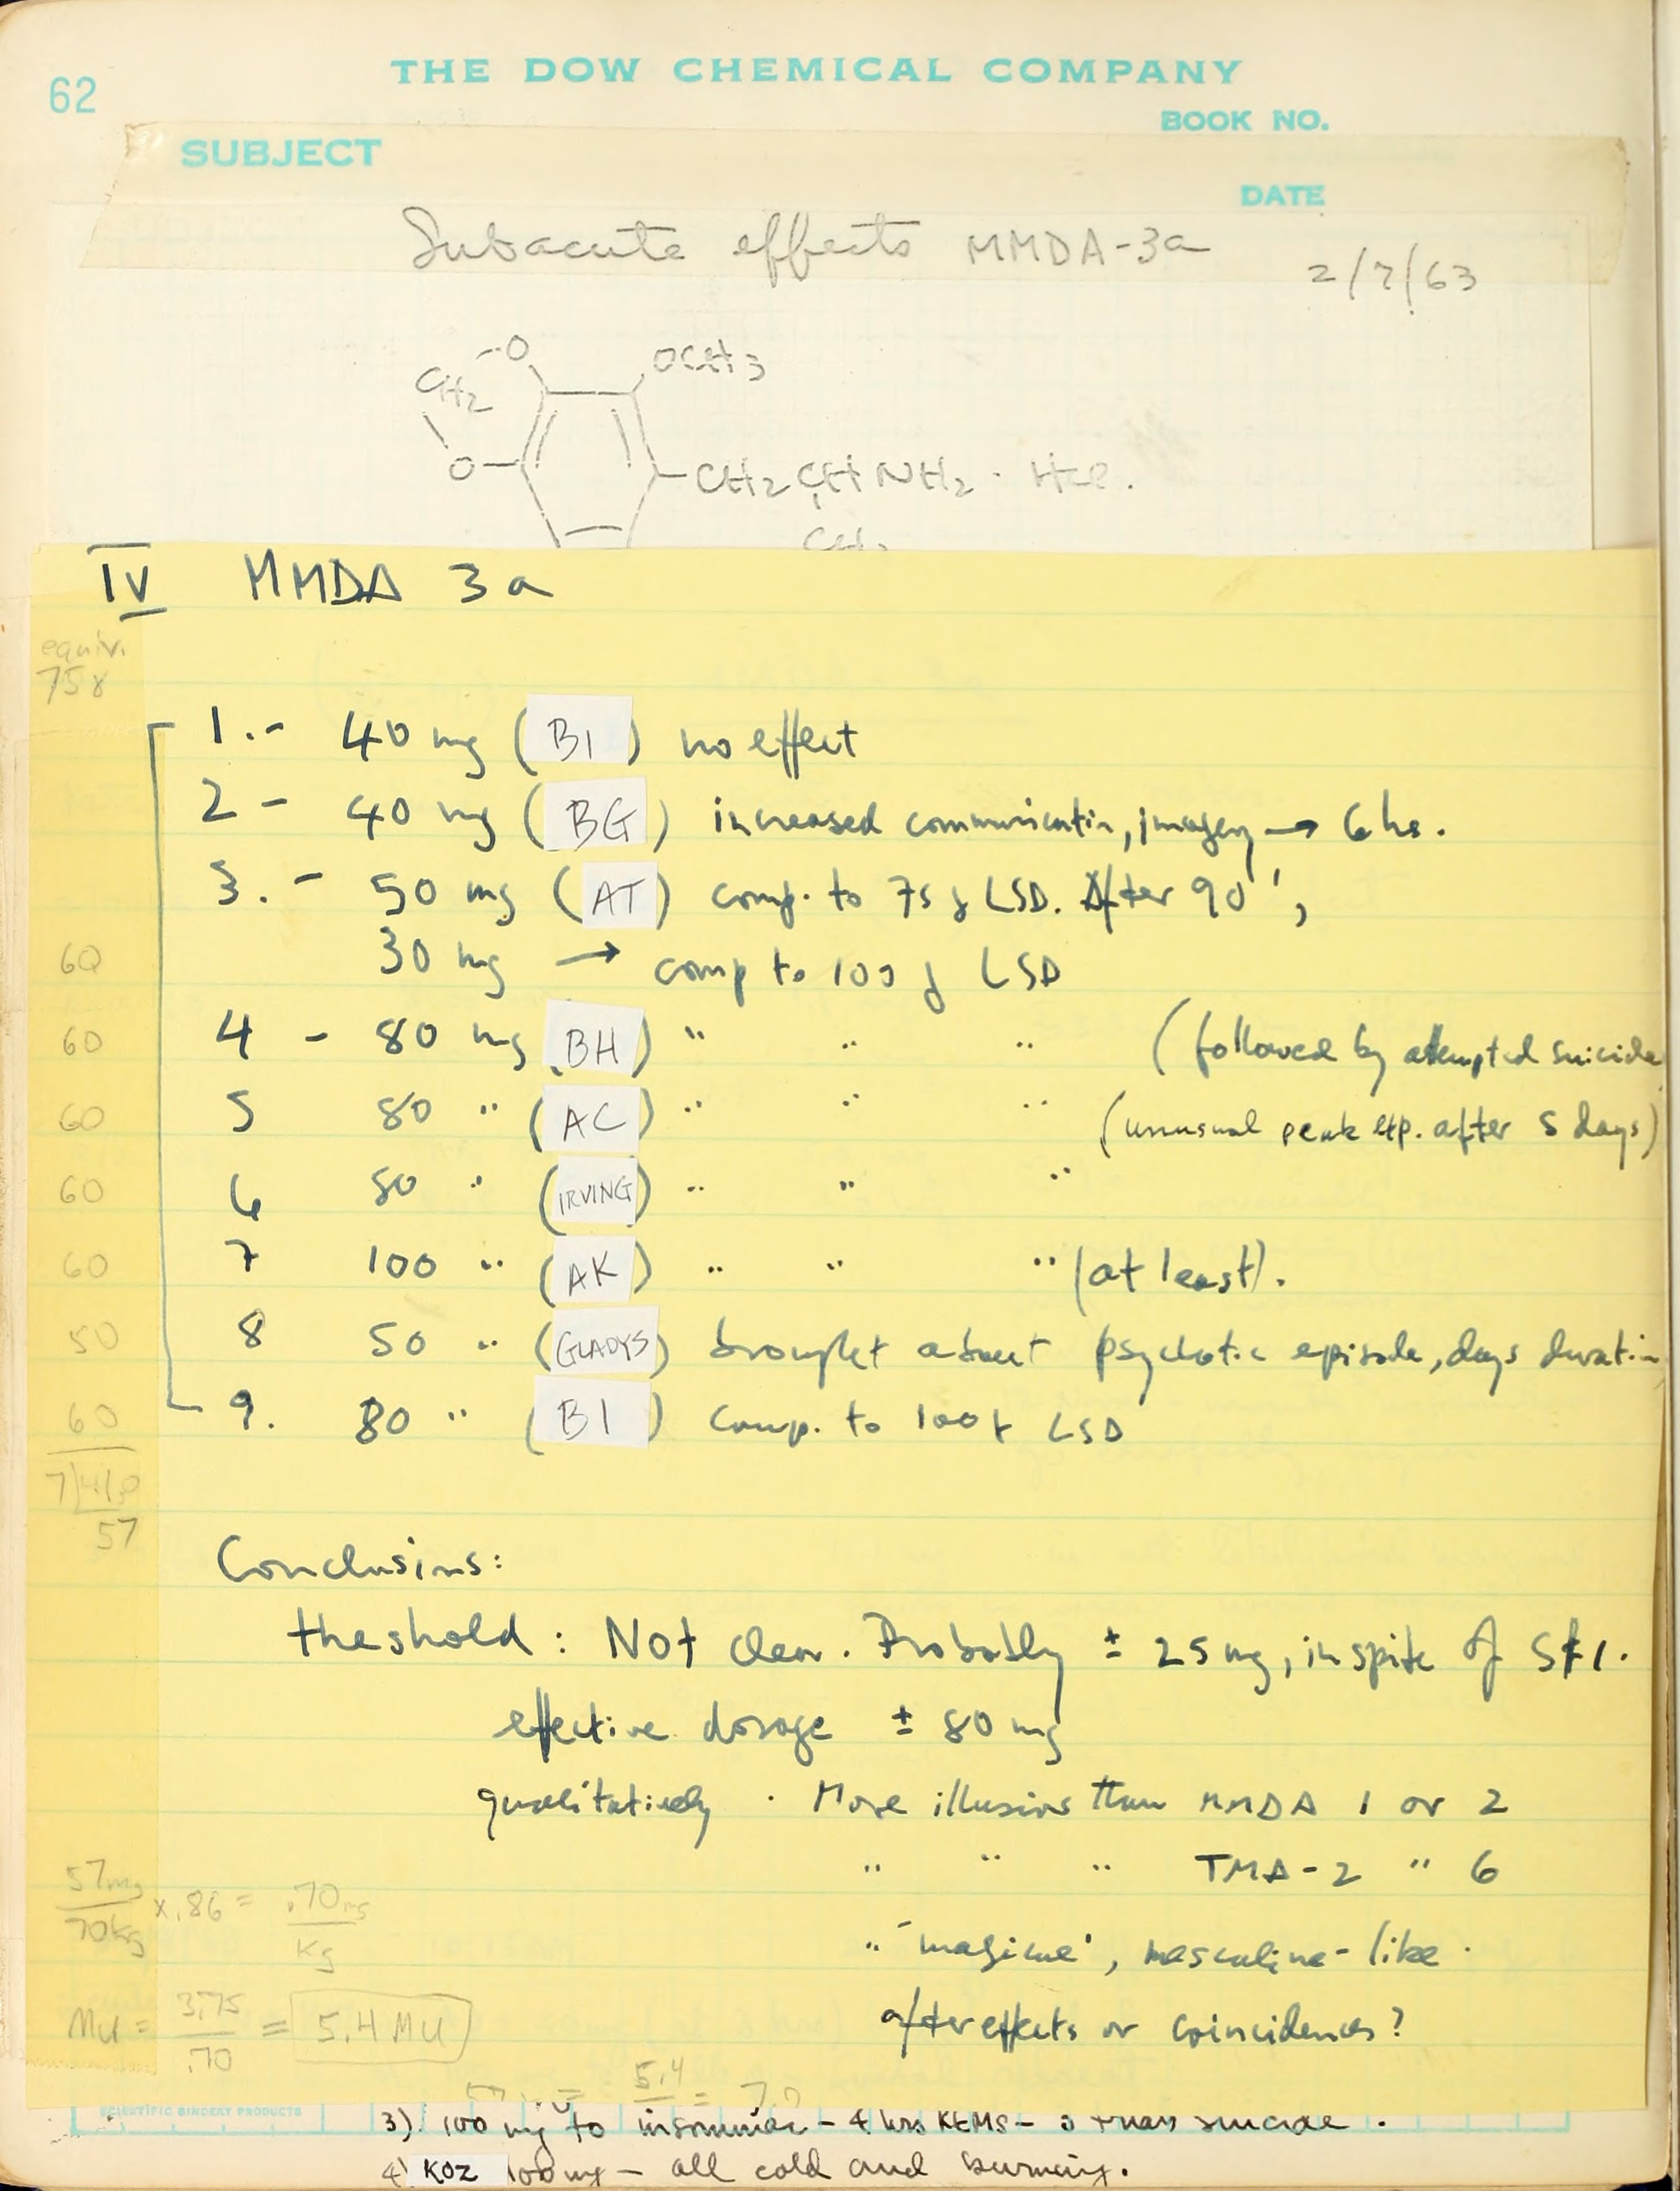 THE DOW CHEMICAL COMPANY
62
BOOK NO.
SUBJECT
DATE
Subacute effects MMDA-3a 2/7/63
O OCH3
CH2
O CH2CHNH2 · HCl.
IV MMDA 3a
equiv.
75γ
1.- 40 mg (BI) no effect
2 - 40 mg (BG) increased communication, imagery → 6 hs.
3.- 50 mg (AT) comp. to 75 γ LSD. After 90',
60 30 mg → comp to 100 γ LSD
60 4 - 80 mg (BH) " " " (followed by attempted suicide
60 5 80 " (AC) " " " (unusual peak exp. after 5 days)
60 6 80 " (IRVING) " " "
60 7 100 " (AK) " " " (at least).
50 8 50 " (GLADYS) brought about psychotic episode, days duration
60 9. 80 " (BI) comp. to 100γ LSD
7|410
57
Conclusions:
threshold: Not clear. Probably ± 25 mg, in spite of S#1.
effective dosage ± 80 mg
qualitatively. More illusions than MMDA 1 or 2
" " " TMA-2 " 6
57mg/70kg x .86 = .70mg/Kg
" 'magical', mescaline-like.
after effects or coincidences?
MU = 3.75/.70 = 5.4 MU
5.4
SCIENTIFIC BINDERY PRODUCTS
3) 100 mg to insomniac - 4 hrs suicide.
4) KOZ 100 mg - all cold and burning.